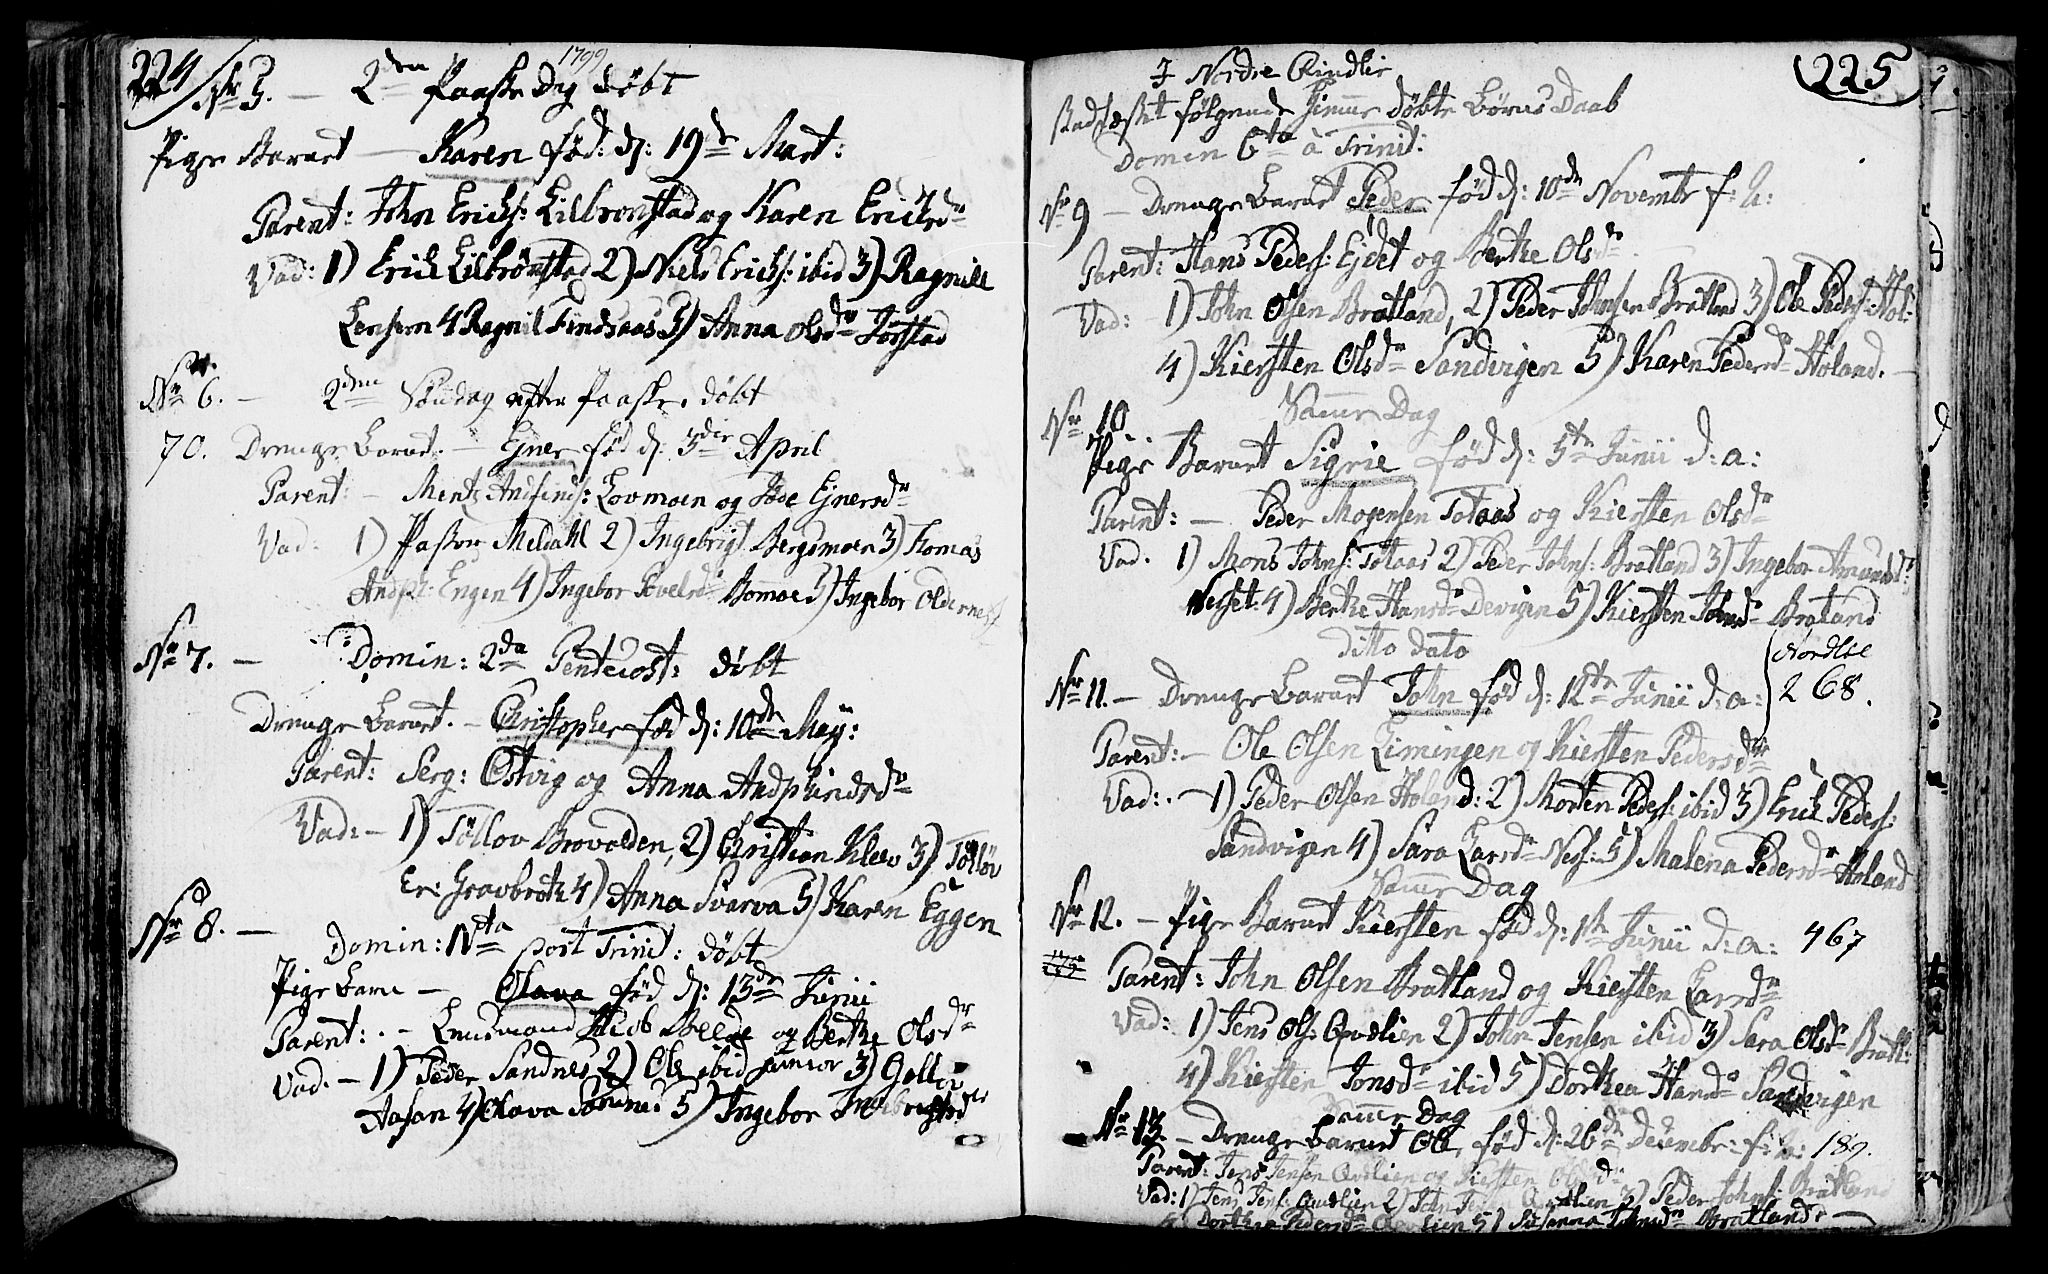 224
1799
Nr 5. — 2den Paaske Dag døbt
Pige Barnet — Karen fød: d: 19de Mart:
Parent: John Erichs: Lilbronstad og Karen Erichsdr
Vad: 1) Erich Lilbrønstad 2) Niels Erichs: ibid 3) Ragnille
4 Ragnil Findsaas 5) Anna Olsdr Jørstad
Nr 6. — 2den Søndag efter Paaske døbt
70. Drenge Barnet. — Ejner fød d: 3die April
Parent: — Mentz Andfinds: Lovmoen og Ejnersdr
Vad. 1) Pastor Meldahl 2) Ingebrigt Bergsmoen 3) Tomas
Andph: Engen 4) Ingebor Bomoe 5) Ingebor Oldernes
Nr 7. — Domin: 2da Pentecost: døbt
Drenge Barnet. — Christopher fød d: 10de Maij:
Parent: Serg: Østvig og Anna Andphindsdr
Vad: — 1) Tøllov Brovolden, 2) Christian Kleev 3) Tølløv
Er: Gravbrøth 4) Anna Svarva 5) Karen Eggen
Nr 8. — Domin: 11ta post Trinit: døbt
Pige Barn — Olava fød d: 13de Junii
Parent: . — Lensmand Jacob og Berthe Olsdr
Vad. — 1) Peder Sandnes 2) Ole ibid junior 3)
Aasan 4) Olava 5) Ingebor Ingebrigtsdr
225
I Nordre Rindlie
Stadfæstet følgende hjemme døbte Børns Daab
Domin 6ta à Trinit:
Nr 9 — Drenge Barnet Peder fød d: 10de Novembr f: A:
Parent: Hans Peders: Ejdet og Berthe Olsdr
Vad: 1) John Olsen Bratland, 2) Peder Johnsen Bratland 3) Ole Peders: Hol:
4) Kiersten Olsdr Sandvigen 5) Karen Pedersdr Holand. —
Nr 10 Samme Dag
Pige Barnet Sigrie fød d: 5te Junii d: a:
Parent: — Peder Mogensen Totaas og Kiersten Olsdr
Vad. 1) Mons Johns: Totaas 2) Peder Johns: Bratland 3) Ingebor Amundsdr
Nesset: 4) Berthe Hansdr Devigen 5) Kiersten Johnsdr Bratland
ditto dato
Nordlie
268.
Nr 11. — Drenge Barnet John fød d: 12te Junii d: a:
Parent: — Ole Olsen Limingen og Kiersten Pedersdr
Vad: . — 1) Peder Olsen Holand: 2) Morten Peders: ibid 3) Erich Peders:
Sandvigen 4) Sara Larsdr Ness: 5) Malena Pedersdr Holand
Samme Dag
Nr 12. — Pige Barnet Kiersten fød d: 1te Junii d: a: 467
Parent: John Olsen Bratland og Kiersten Larsdr
Vad: 1) Jens Ols: Qvelien 2) John Jensen ibid 3) Sara Olsdr Bratl:
4) Kiersten Jonsdr ibid 5) Dorthea Hansdr Sandvigen
Samme Dag
Nr 13. — Drenge Barnet Ole fød d: 26de Decembr: f: A: 189.
Parent: Jens Jensen Qvelien og Kiersten Olsdr
Vad: 1) Jens Jens: Qvelien 2) John Jensen Qvelien 3) Peder Johns: Bratland
4) Dorthea Pedersdr Qvelien 5) Susanna Johnsdr Bratland —